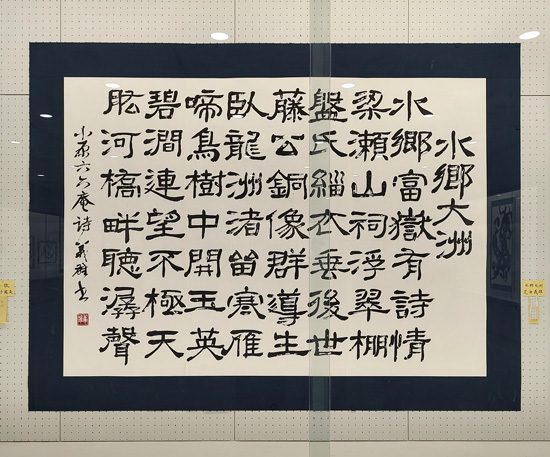 水鄉大洲
水鄉富嶽有詩情
梁瀬山祠浮翠棚
盤氏緇衣垂後世
藤公銅像群導生
臥龍洲渚留寒雁
啼鳥樹中開玉英
碧澗連望不極天
肱河橋畔聽潺聲
小原六六庵詩 義雄書